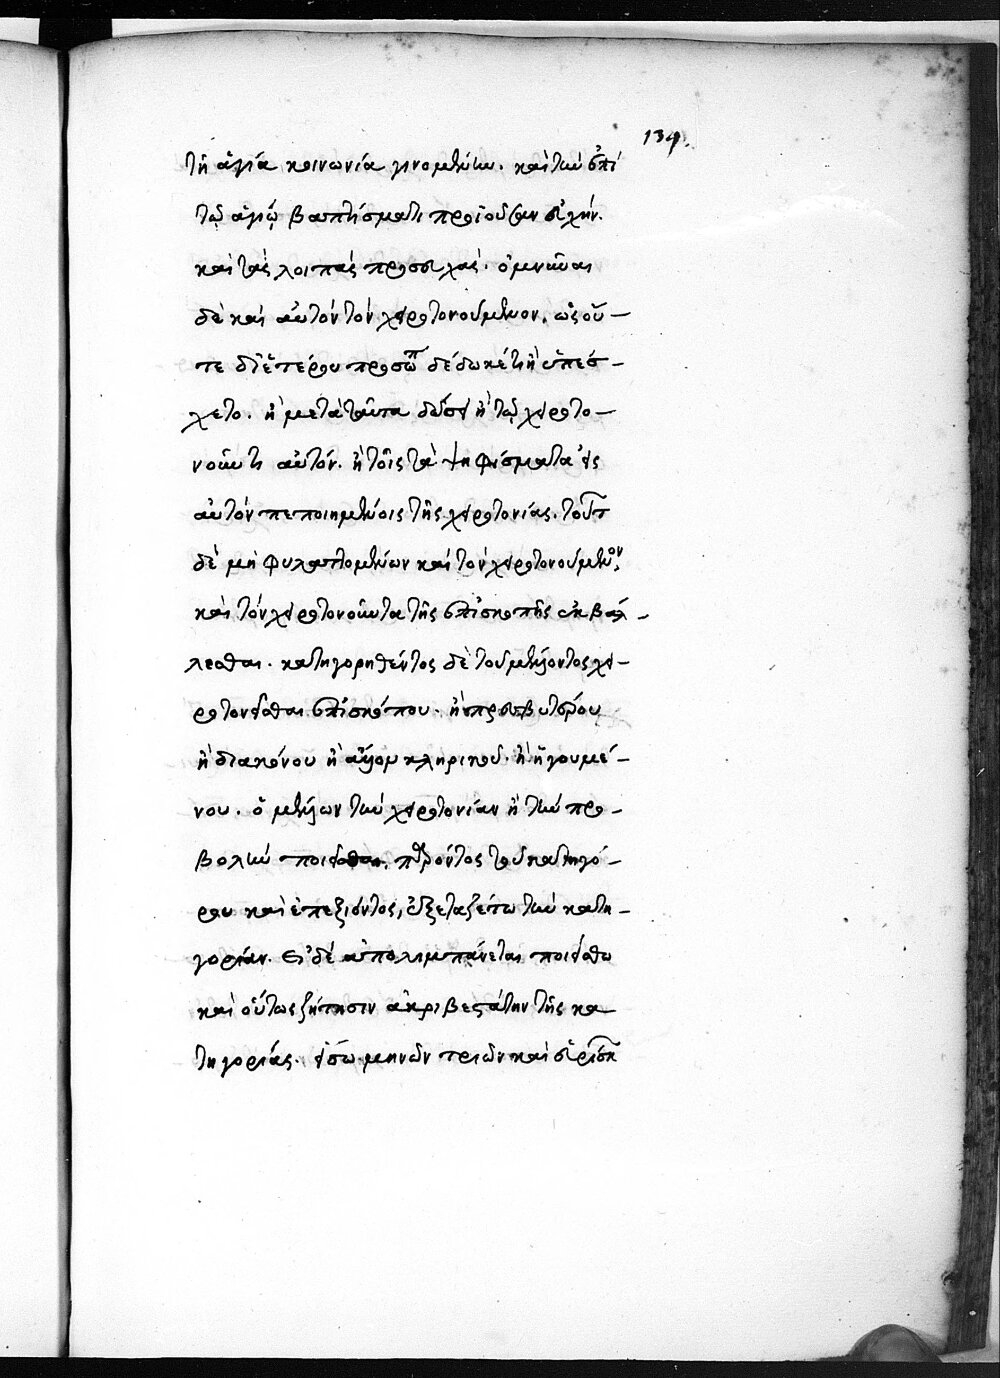 139.
τῇ ἁγία κοινωνία γινομένην. καὶ τὴν ἐπὶ
τῷ ἁγίῳ βαπτίσματι προϊοῦσαν εὐχήν.
καὶ τὰς λοιπὰς προσευχάς. ὀμνῦναι
δὲ καὶ αὐτὸν τὸν χειροτονούμενον, ὡς οὔ-
τε δι' ἑτέρου προσώπ δέδωκέ τι ἢ ὑπέσ-
χετο. ἢ μετὰ ταῦτα δώσει ἢ τῷ χειροτο-
νοῦντι αὐτόν. ἢ τοῖς τὰ ψηφίσματα εἰς
αὐτὸν πεποιημένοις τῆς χειροτονίας. τούτ
δὲ μὴ φυλαττομένων καὶ τὸν χειροτονούμενον,
καὶ τὸν χειροτονοῦντα τῆς ἐπισκοπῆς ἐκβάλ-
λεσθαι. κατηγορηθέντος δὲ τοῦ μέλλοντος χει-
ροτονεῖσθαι ἐπισκόπου. ἢ πρεσβυτέρου
ἢ διακόνου ἢ ἄλλου κληρικοῦ. ἢ ἡγουμέ-
νου. ὁ μέλλων τὴν χειροτονίαν ἢ τὴν προ-
βολὴν ποιεῖσθαι, παρόντος τοῦ κατηγό-
ρου καὶ ἐπεξιόντος, ἐξεταζέτω τὴν κατη-
γορίαν. Εἰ δὲ ἀπολιμπάνεται ποιείσθω
καὶ οὕτως ζήτησιν ἀκριβεστάτην τῆς κα
τηγορίας. εἴσω μηνῶν τριῶν καὶ εὑρίσκ